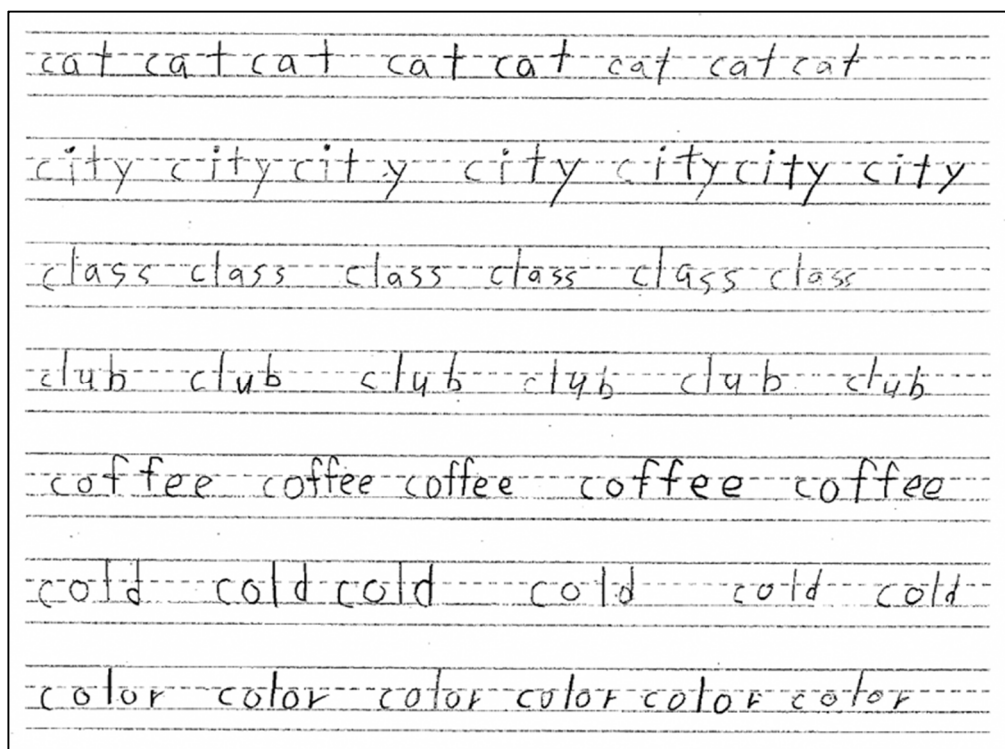 cat cat cat cat cat cat cat cat
city city city city city city city
class class class class class class
club club club club club club
coffee coffee coffee coffee coffee
cold cold cold cold cold cold
color color color color color color